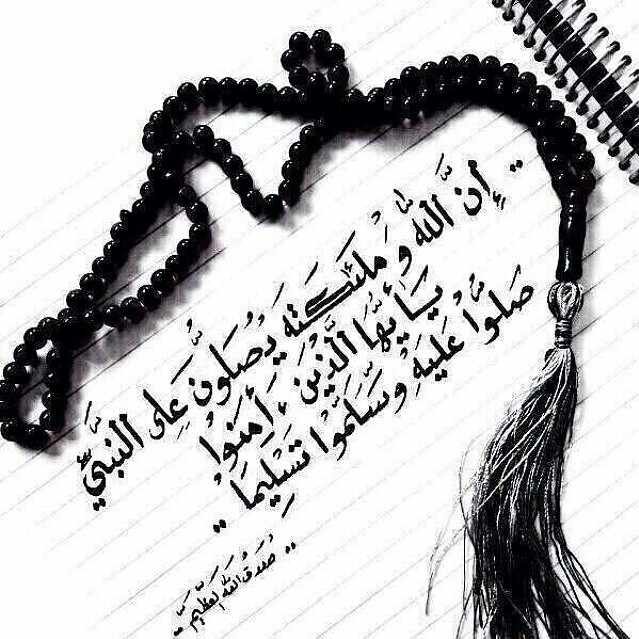 .. إِنَّ اللَّهَ وَمَلَئكَتَهُ يُصَلُّونَ عَلى النَّبيِّ
يَـأَيُّهَا الَّذِينَ ءَامَنُوا
صَلُّوا عَلَيْهِ وَسَلِّمُوا تَسْلِيمَا ..
.. صَدَقَ اللَّهُ العَظِيمْ ..